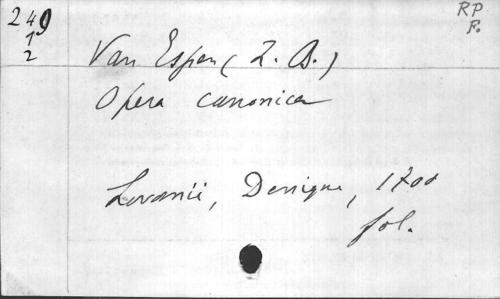 249
1
2
RP
F.
Van Espen (Z. B.)
Opera canonica
Lovanii, Denique, 1700
fol.